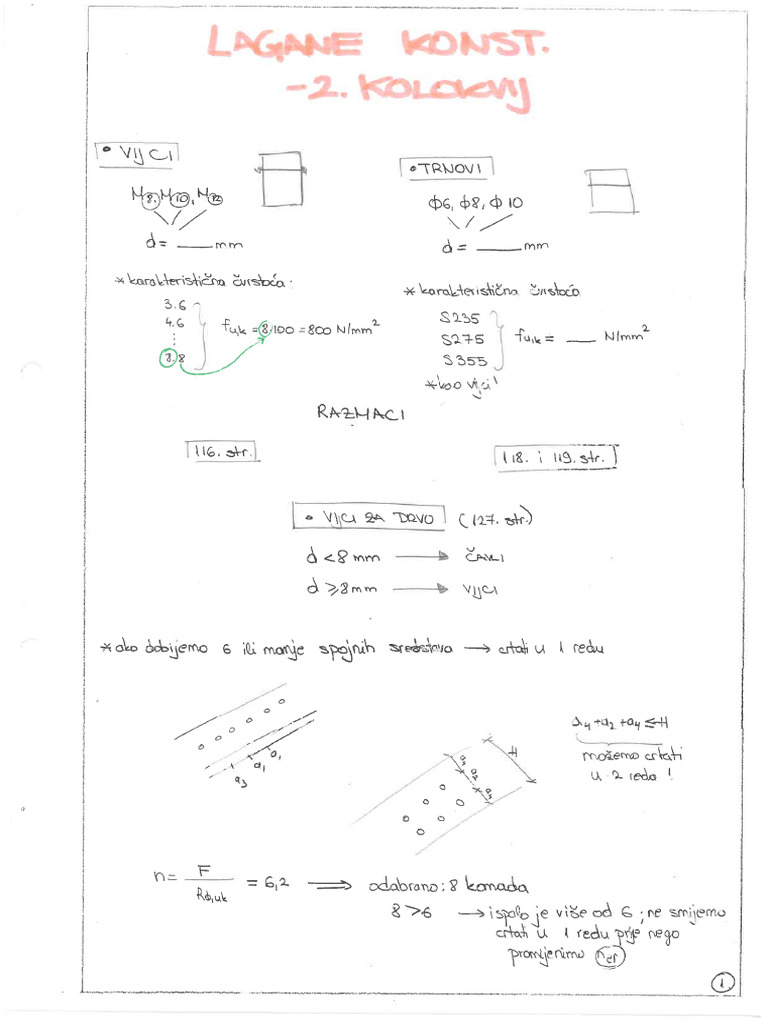 LAGANE KONST.
-2. KOLOKVIJ
• VIJCI
M8, M10, M12
d = ___ mm
* karakteristična čvrstoća:
3.6
4.6
⋮
8.8
fu,k = 8·100 = 800 N/mm²
• TRNOVI
Φ6, Φ8, Φ10
d = ___ mm
* karakteristična čvrstoća
S235
S275
S355
fu,k = ___ N/mm²
* kao vijci!
RAZMACI
116. str.
118. i 119. str.
• VIJCI ZA DRVO (127. str.)
d < 8 mm → ČAVLI
d ≥ 8 mm → VIJCI
* ako dobijemo 6 ili manje spojnih sredstava → crtati u 1 redu
a3 a1 a1
a2 H
a4 + a2 + a4 ≤ H
možemo crtati
u 2 reda!
n = F / Rd,uk = 6,2 ⟹ odabrano: 8 komada
8 > 6 → ispalo je više od 6; ne smijemo
crtati u 1 redu prije nego
promijenimo nef
1